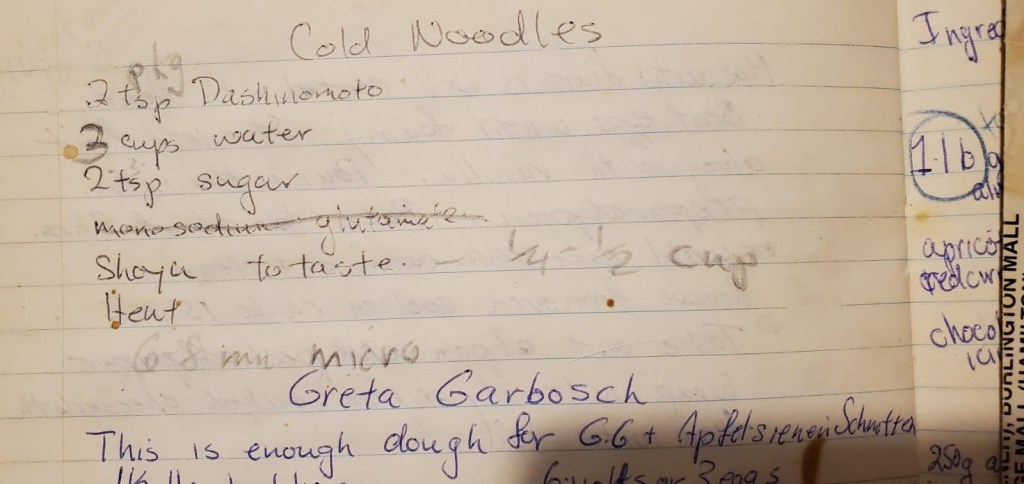 Cold Noodles
pkg
2 tsp Dashinomoto
3 cups water
2 tsp sugar
monosodium glutamate
Shoyu to taste. - 1/4 - 1/2 cup
Heat
6 min micro
Greta Garbosch
This is enough dough for G.G + Apfelsienen Schnitten
6 yolks or 3 eggs
Ingred
1 lb
aprico
redcur
choco
250g
BURLINGTON MALL